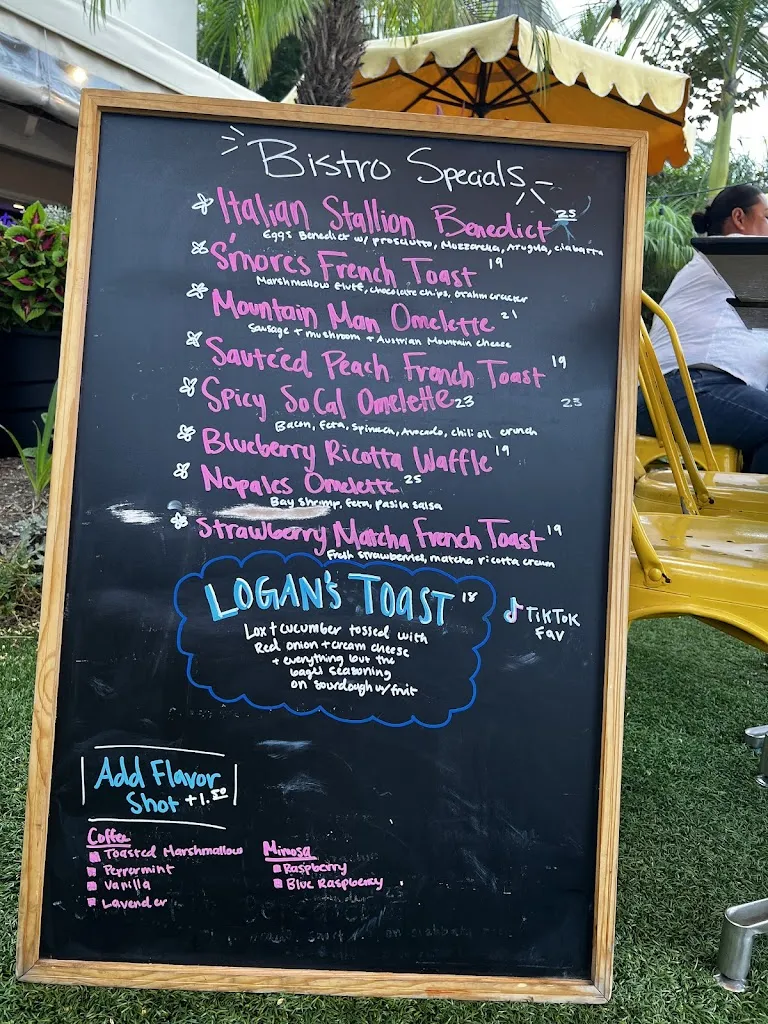 Bistro Specials
Italian Stallion Benedict 25
Eggs Benedict w/ prosciutto, Muzzarella, Arugula, ciabatta
S'mores French Toast 19
Marshmallow fluff, chocolate chips, Grahm cracker
Mountain Man Omelette 21
Sausage + mushroom + Austrian Mountain cheese
Sautéed Peach French Toast 19
Spicy SoCal Omelette 23 23
Bacon, feta, spinach, Avocado, chili oil crunch
Blueberry Ricotta Waffle 19
Nopales Omelette 25
Bay Shrimp, feta, pasila salsa
Strawberry Matcha French Toast 19
Fresh strawberries, matcha ricotta cream
LOGAN'S TOAST 18
Lox + cucumber tossed with
Red onion + cream cheese
+ everything but the
bagel seasoning
on sourdough w/ fruit
TikTok
FAV
Add Flavor
Shot +1.50
Coffee
Toasted Marshmallow
Peppermint
Vanilla
Lavender
Mimosa
Raspberry
Blue Raspberry